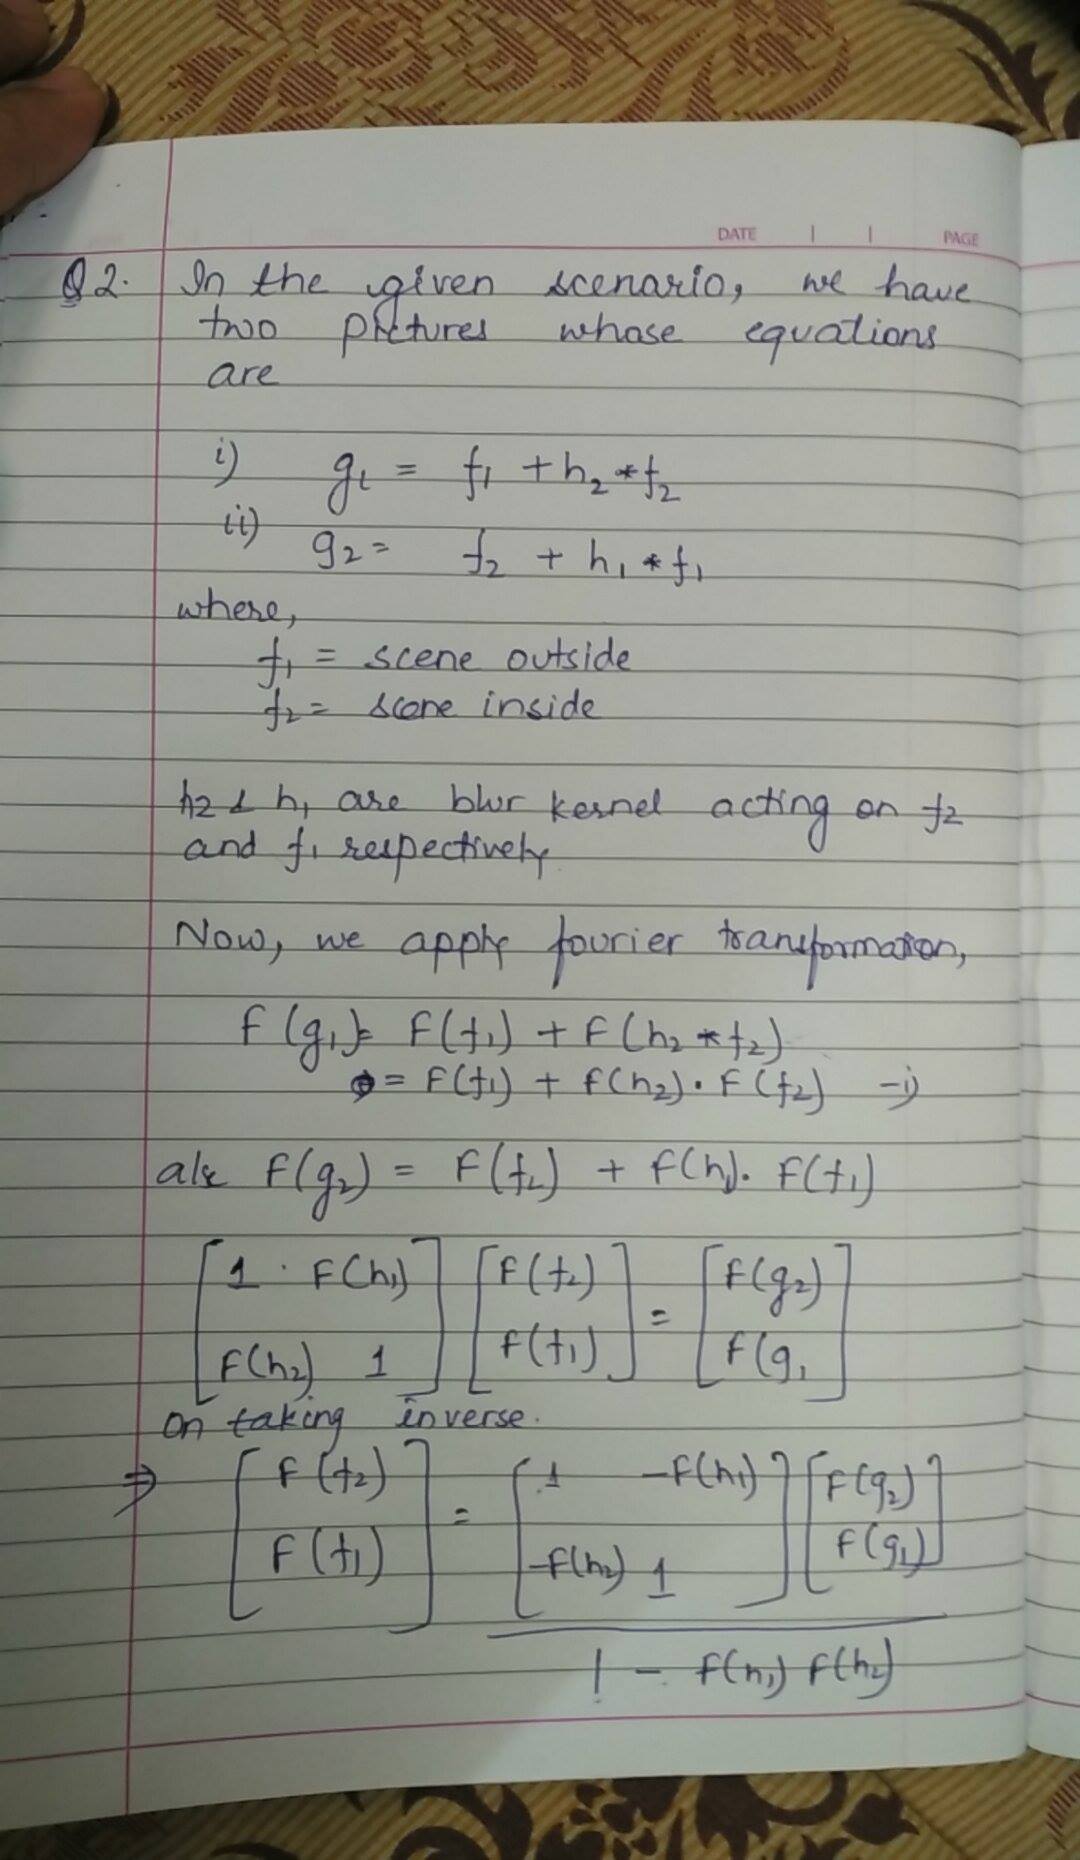 DATE | | PAGE
Q2. In the given scenario, we have
two pictures whose equations
are
i) g1 = f1 + h2 * f2
ii) g2 = f2 + h1 * f1
where,
f1 = scene outside
f2 = scene inside
h2 & h1 are blur kernel acting on f2
and f1 respectively
Now, we apply fourier transformation,
F(g1) = F(f1) + F(h2 * f2)
= F(f1) + F(h2) . F(f2) -i)
also F(g2) = F(f2) + F(h1). F(f1)
[1 . F(h1)] [F(f2)] = [F(g2)]
[F(h2) 1] [F(f1)] [F(g1]
on taking inverse.
⇒ [F(f2)] = [1 -F(h1)] [F(g2)]
[F(f1)] [-F(h2) 1] [F(g1)]
1 - F(h1) F(h2)